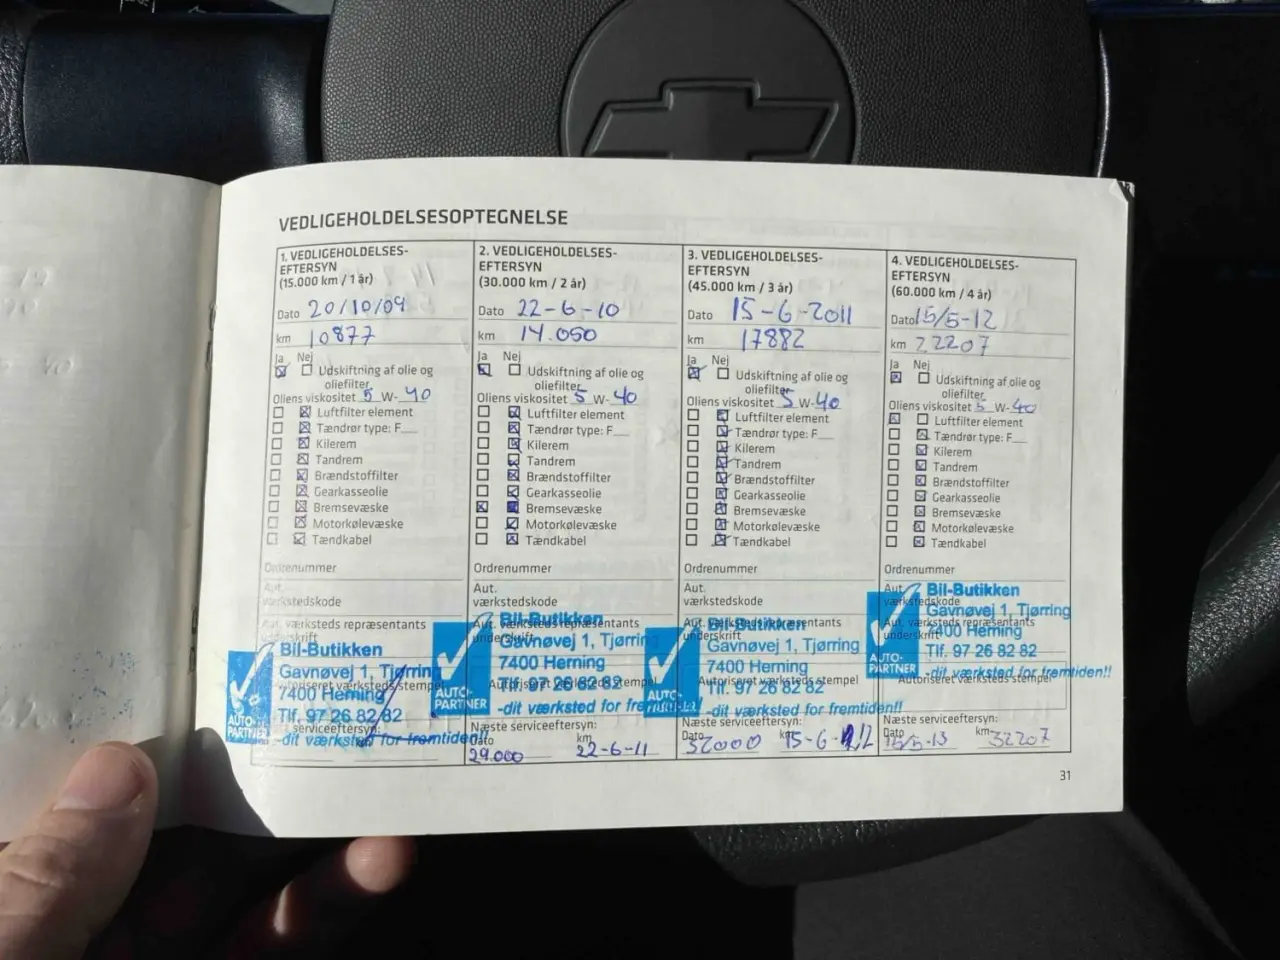 VEDLIGEHOLDELSESOPTEGNELSE
1. VEDLIGEHOLDELSES-
EFTERSYN
(15.000 km / 1 år)
Dato 20/10/09
km 10877
Ja Nej
Udskiftning af olie og
oliefilter
Oliens viskositet 5 W-40
Luftfilter element
Tændrør type: F__
Kilerem
Tandrem
Brændstoffilter
Gearkasseolie
Bremsevæske
Motorkølevæske
Tændkabel
Ordrenummer
Aut.
værkstedskode
Aut. værksteds repræsentants
underskrift
Bil-Butikken
Gavnøvej 1, Tjørring
Autoriseret værksteds stempel
7400 Herning
Tlf. 97 26 82 82
AUTO-
PARTNER
-dit værksted for fremtiden!!
serviceeftersyn:
2. VEDLIGEHOLDELSES-
EFTERSYN
(30.000 km / 2 år)
Dato 22-6-10
km 14.050
Ja Nej
Udskiftning af olie og
oliefilter
Oliens viskositet 5 W-40
Luftfilter element
Tændrør type: F__
Kilerem
Tandrem
Brændstoffilter
Gearkasseolie
Bremsevæske
Motorkølevæske
Tændkabel
Ordrenummer
Aut.
værkstedskode
Aut. værksteds repræsentants
underskrift
Bil-Butikken
Gavnøvej 1, Tjørring
7400 Herning
Autoriseret værksteds stempel
Tlf. 97 26 82 82
AUTO-
PARTNER
-dit værksted for
Næste serviceeftersyn:
Dato km
29.000 22-6-11
3. VEDLIGEHOLDELSES-
EFTERSYN
(45.000 km / 3 år)
Dato 15-6-2011
km 17882
Ja Nej
Udskiftning af olie og
oliefilter
Oliens viskositet 5 W-40
Luftfilter element
Tændrør type: F__
Kilerem
Tandrem
Brændstoffilter
Gearkasseolie
Bremsevæske
Motorkølevæske
Tændkabel
Ordrenummer
Aut.
værkstedskode
Aut. værksteds repræsentants
underskrift
Bil-Butikken
Gavnøvej 1, Tjørring
7400 Herning
Autoriseret værksteds stempel
Tlf. 97 26 82 82
AUTO-
PARTNER
-dit værksted for fremtiden!!
Næste serviceeftersyn:
Dato km
32000 15-6-12
4. VEDLIGEHOLDELSES-
EFTERSYN
(60.000 km / 4 år)
Dato 15/5-12
km 22207
Ja Nej
Udskiftning af olie og
oliefilter
Oliens viskositet 5 W-40
Luftfilter element
Tændrør type: F__
Kilerem
Tandrem
Brændstoffilter
Gearkasseolie
Bremsevæske
Motorkølevæske
Tændkabel
Ordrenummer
Aut.
værkstedskode
Aut. værksteds repræsentants
underskrift
Bil-Butikken
Gavnøvej 1, Tjørring
7400 Herning
Tlf. 97 26 82 82
AUTO-
PARTNER
-dit værksted for fremtiden!!
Autoriseret værksteds stempel
Næste serviceeftersyn:
Dato km
15/5-13 32207
31